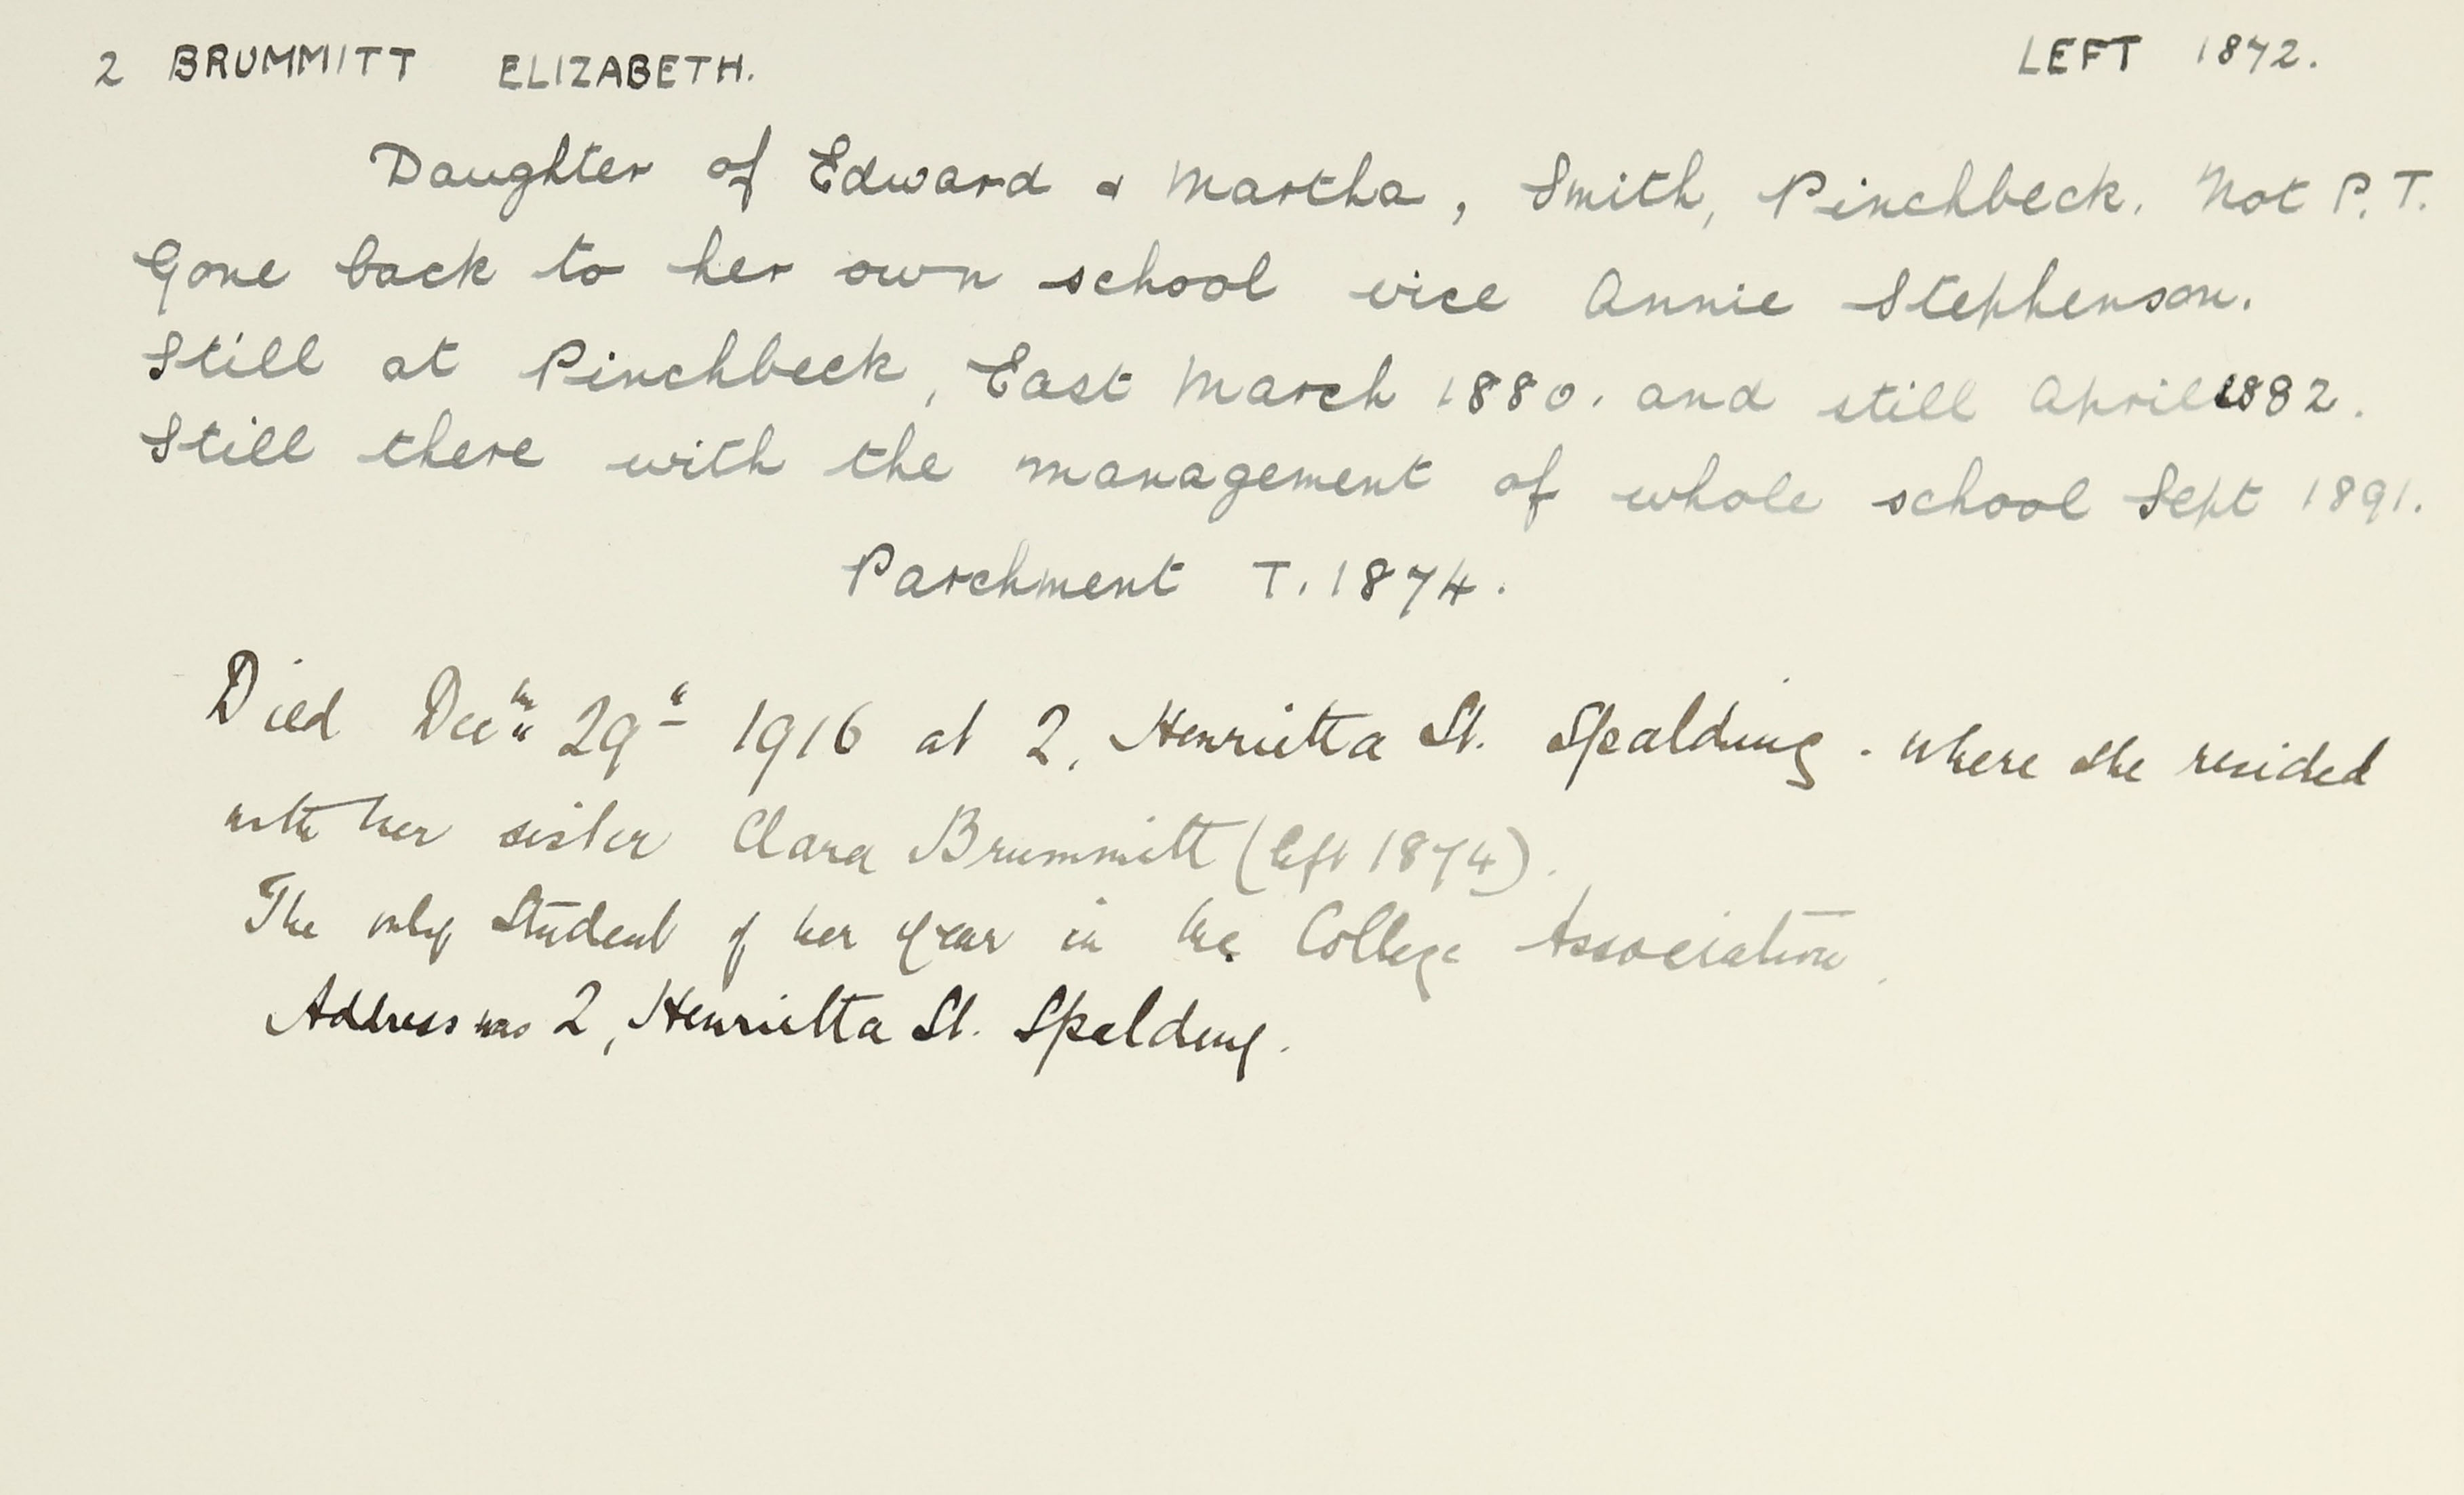 2 BRUMMITT ELIZABETH. LEFT 1872.
Daughter of Edward & Martha, Smith, Pinchbeck. Not P.T.
Gone back to her own school vice Annie Stephenson.
Still at Pinchbeck, East March 1880. and still April 1882.
Still there with the management of whole school Sept 1891.
Parchment T. 1874.
Died Decm 29th 1916 at 2, Henrietta St. Spalding. where she resided
with her sister Clara Brummitt (left 1874).
The only Student of her year in the College Association.
Address was 2, Henrietta St. Spalding.